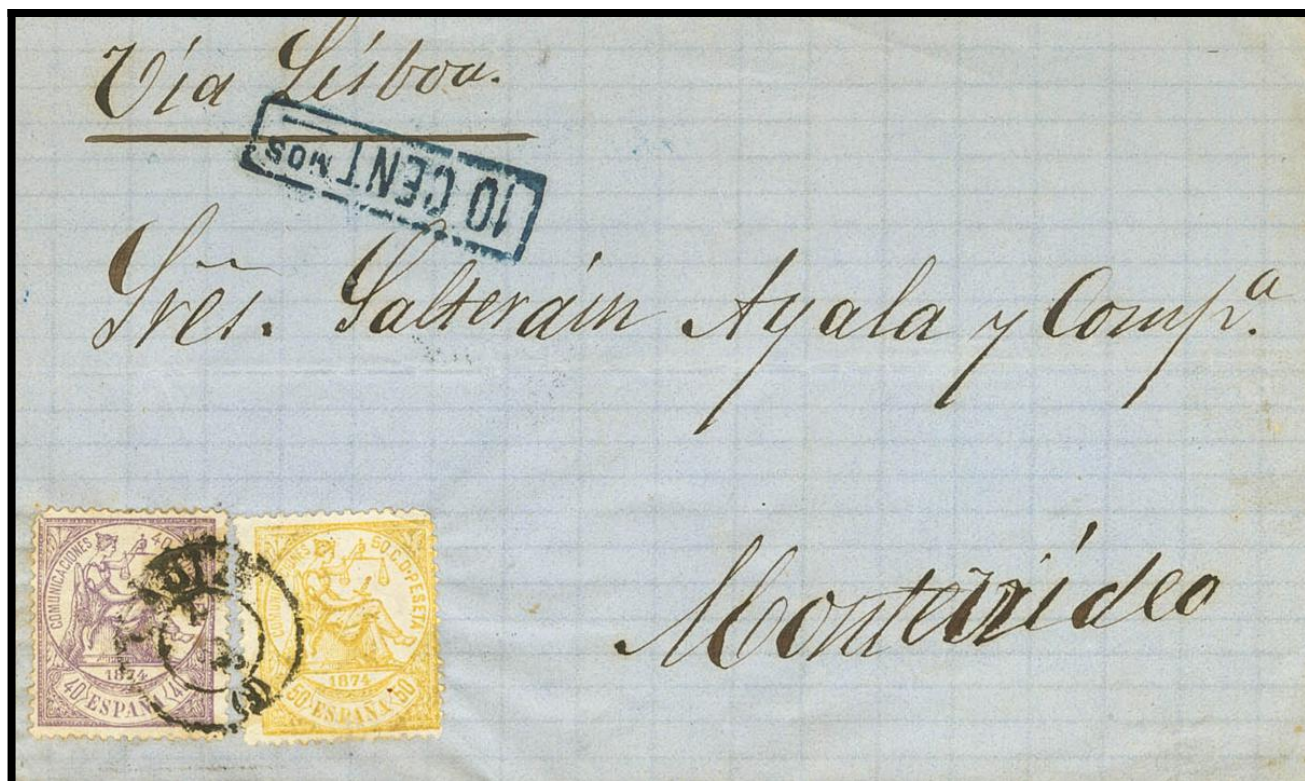 Vía Lisboa.
10 CENTMOS
Sres. Salteráin Ayala y Comp.a
Montevideo
COMUNICACIONES 40
1874
40 ESPAÑA 40
50 C. D. PESETA
1874
50 ESPAÑA 50